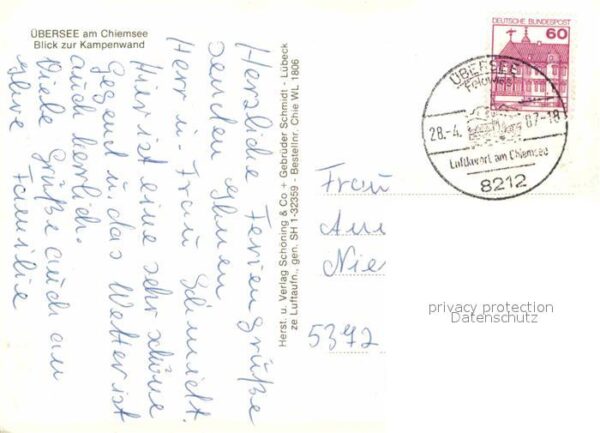 ÜBERSEE am Chiemsee
Blick zur Kampenwand
Herzliche Feriengrüße
senden Ihnen
Herr u. Frau Schmidt.
Hier ist eine sehr schöne
Gegend u. das Wetter ist
auch herrlich.
Viele Grüße auch an
Ihre Familie
Herst. u. Verlag Schöning & Co + Gebrüder Schmidt - Lübeck
ze Luftaufn., gen. SH 1-32359 - Bestellnr. Chie WL 1806
DEUTSCHE BUNDESPOST
60
ÜBERSEE
28.-4. 87-18
Luftkurort am Chiemsee
8212
Frau
Nie
5372
privacy protection
Datenschutz